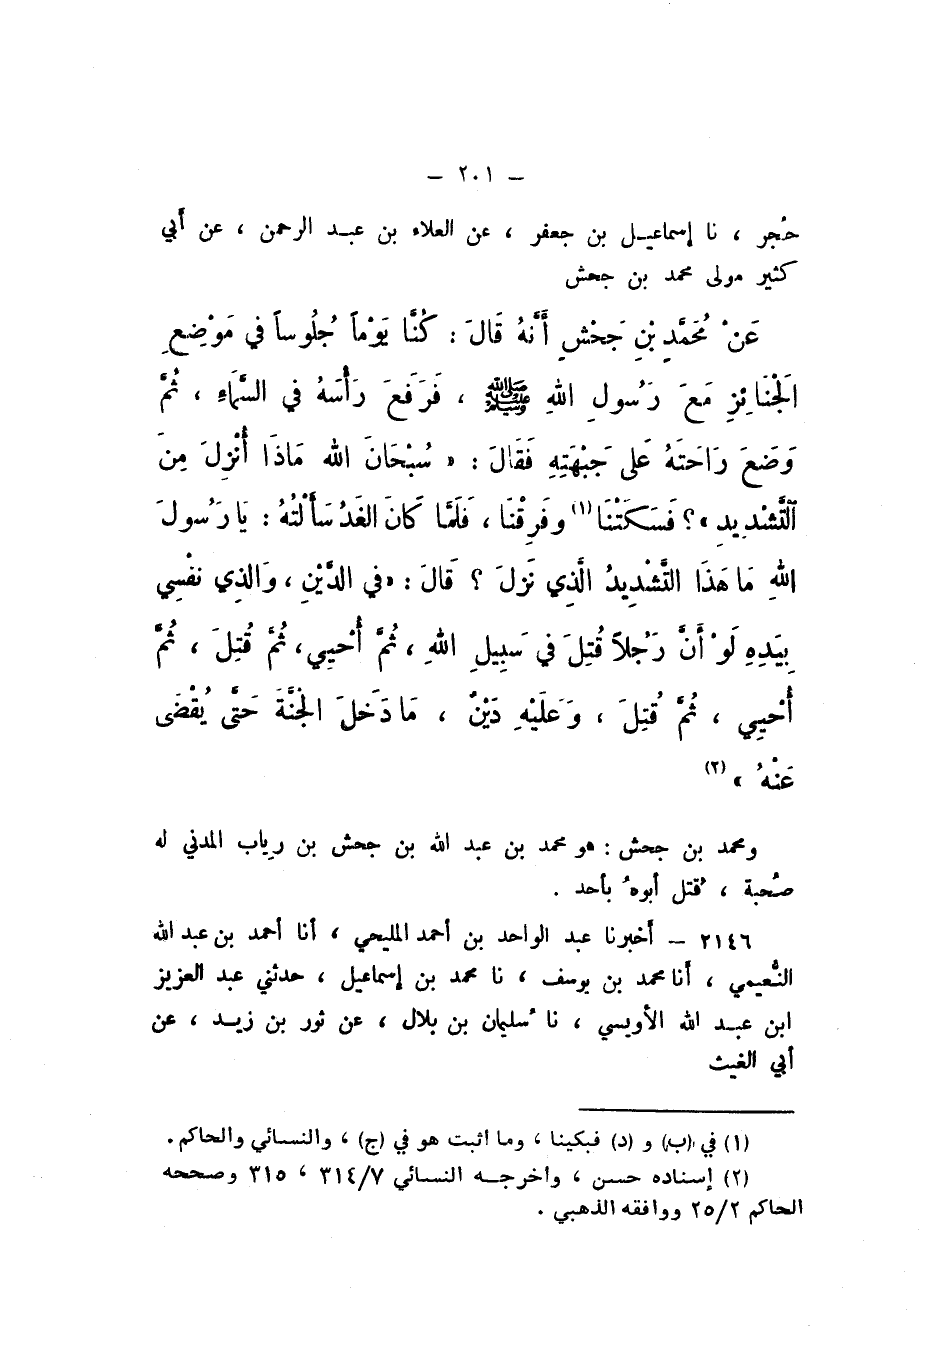 – ٢٠١ –
حُجر ، نا إسماعيـل بن جعفر ، عن العلاء بن عبـد الرحمن ، عن أبي
كثير مولى محمد بن جحش
عَنْ مُحَمَّدِ بْنِ جَحْشٍ أَنَّهُ قَالَ : كُنَّا يَوْماً جُلُوساً في مَوْضِعِ
الْجَنَائِزِ مَعَ رَسُولِ اللهِ ﷺ ، فَرَفَعَ رَأْسَهُ في السَّمَاءِ ، ثُمَّ
وَضَعَ رَاحَتَهُ عَلى جَبْهَتِهِ فَقَالَ : « سُبْحَانَ الله مَاذَا أُنْزِلَ مِنَ
التَّشْدِيدِ » ؟ فَسَكَتْنَا (١) وفَرِقْنَا ، فَلَمَّا كَانَ الغَدُ سَأَلْتُهُ : يَا رَسُولَ
اللهِ مَا هَذَا التَّشْدِيدُ الَّذِي نَزَلَ ؟ قَالَ : « في الدَّيْنِ ، وَالذِي نفْسِي
بِيَدِهِ لَوْ أَنَّ رَجُلاً قُتِلَ في سَبِيلِ اللهِ ، ثُمَّ أُحْيِي ، ثُمَّ قُتِلَ ، ثُمَّ
أُحْيِي ، ثُمَّ قُتِلَ ، وَعَلَيْهِ دَيْنٌ ، مَا دَخَلَ الْجَنَّةَ حَتَّى يُقْضَى
عَنْهُ » (٢)
ومحمد بن جحش : هو محمد بن عبد الله بن جحش بن رياب المدني له
صُحبة ، قُتل أبوهُ بأحد .
٢١٤٦ – أخبرنا عبد الواحد بن أحمد المليحي ، أنا أحمد بن عبد الله
النُّعيمي ، أنا محمد بن يوسف ، نا محمد بن إسماعيل ، حدثني عبد العزيز
ابن عبـد الله الأويسي ، نا سُليمان بن بلال ، عن ثور بن زيـد ، عن
أبي الغيث
(١) في (ب) و (د) فبكينا ، وما اثبت هو في (ج) ، والنسائي والحاكم .
(٢) إسناده حسن ، واخرجـه النسائي ٣١٤/٧ ، ٣١٥ وصححه
الحاكم ٢٥/٢ ووافقه الذهبي .